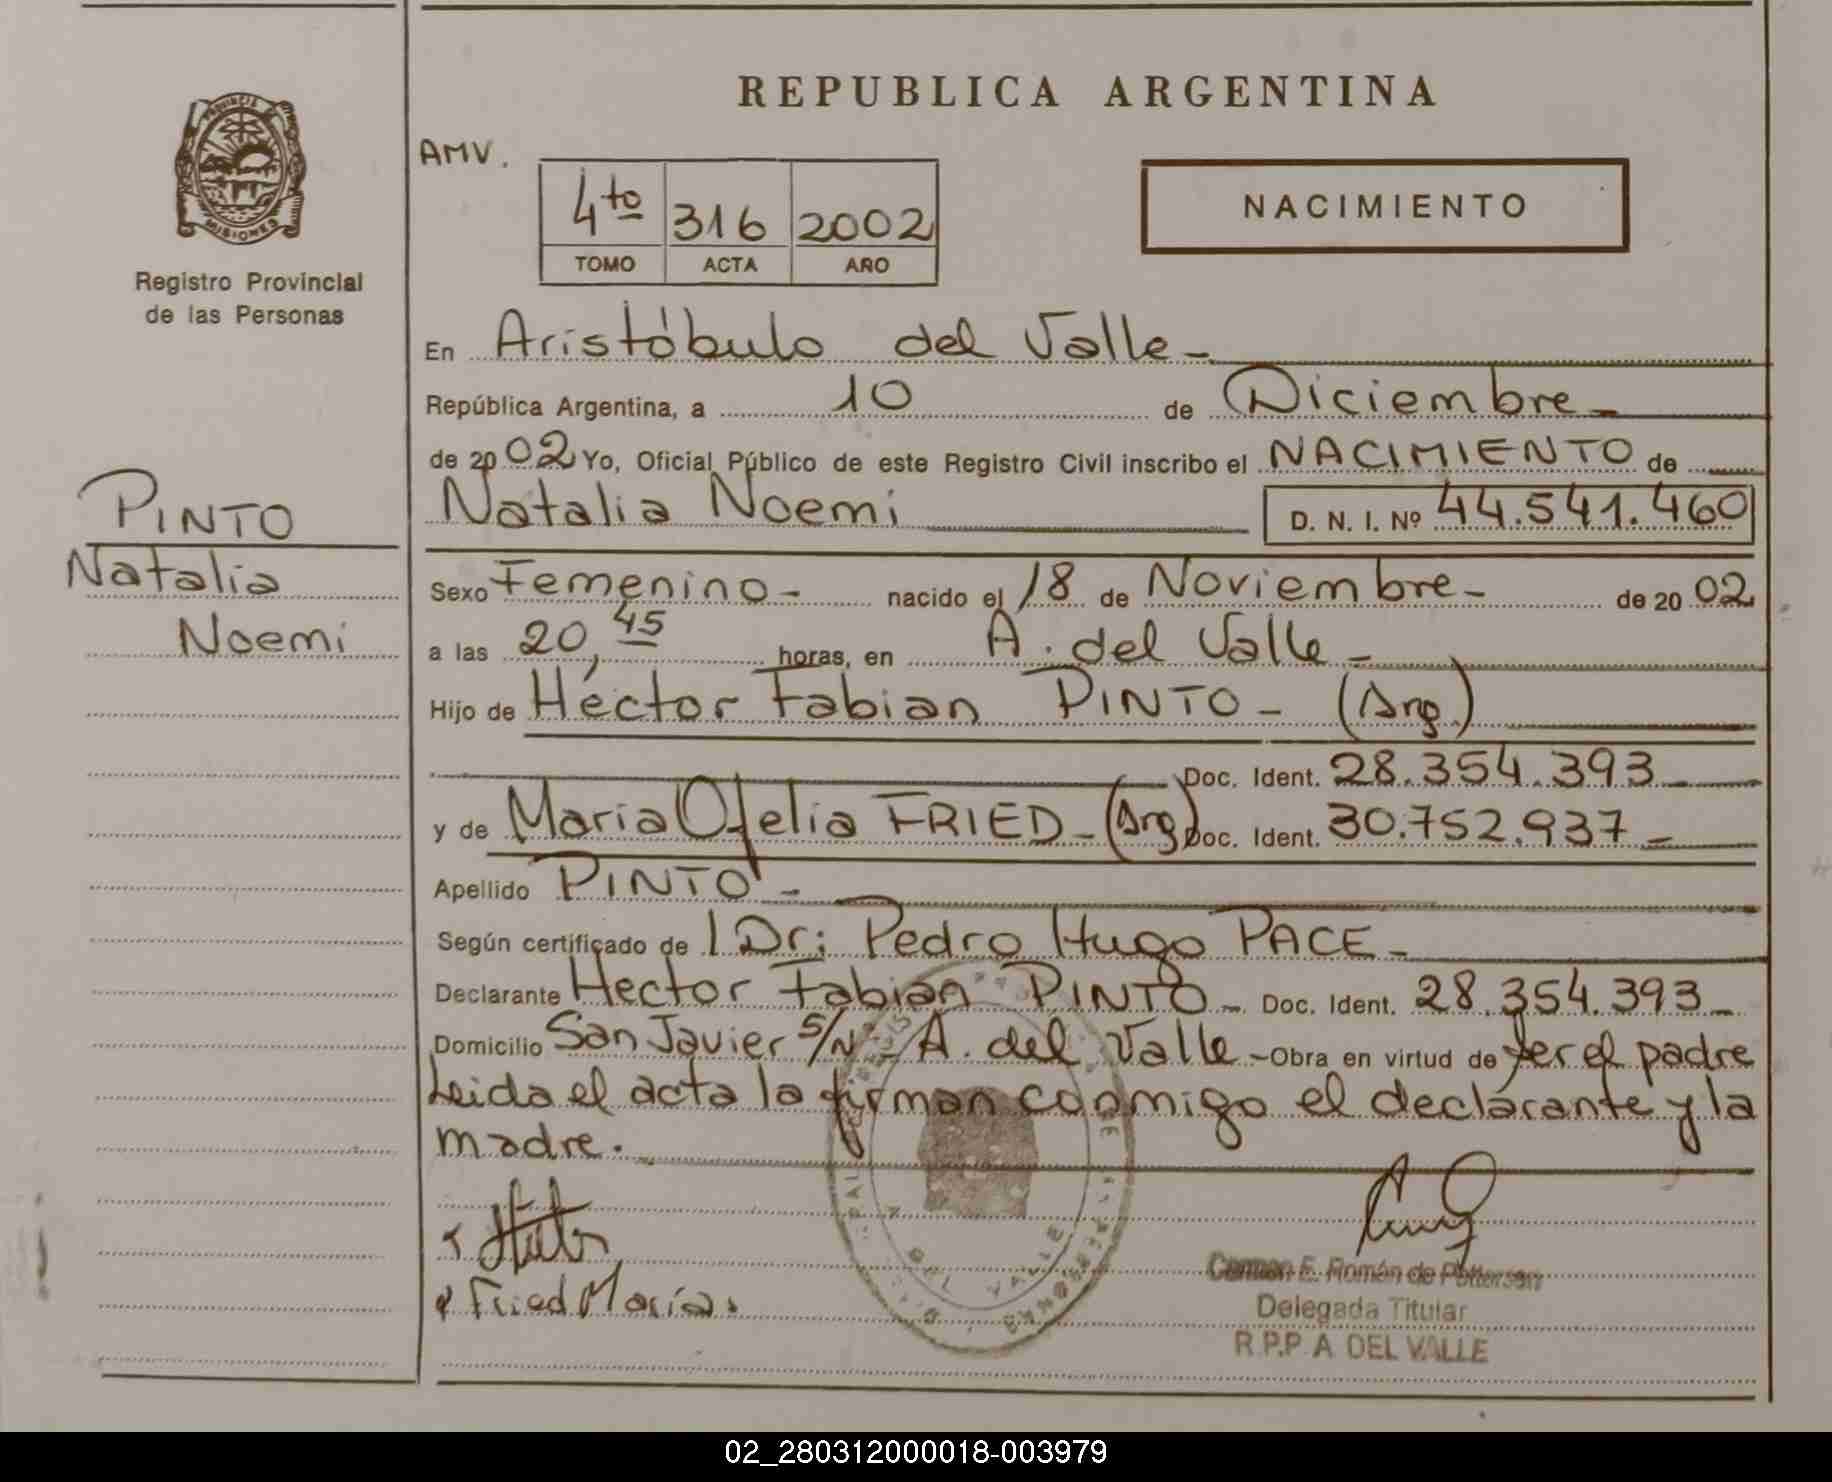 REPUBLICA ARGENTINA
PROVINCIA
MISIONES
Registro Provincial
de las Personas
AMV.
4to 316 2002
TOMO ACTA AÑO
NACIMIENTO
PINTO
Natalia
Noemi
En Aristóbulo del Valle -
República Argentina, a 10 de Diciembre -
de 2002 Yo, Oficial Público de este Registro Civil inscribo el NACIMIENTO de
Natalia Noemi D. N. I. Nº 44.541.460
Sexo Femenino - nacido el 18 de Noviembre - de 2002
a las 20,45 horas, en A. del Valle -
Hijo de Héctor Fabian PINTO - (Arg.)
Doc. Ident. 28.354.393 -
y de Maria Ofelia FRIED - (Arg) Doc. Ident. 30.752.937 -
Apellido PINTO -
Según certificado de l Dr: Pedro Hugo PACE -
Declarante Hector Fabian PINTO - Doc. Ident. 28.354.393 -
Domicilio San Javier S/Nº - A. del Valle - Obra en virtud de ser el padre
Leida el acta la firman conmigo el declarante y la
madre.
Fried Maria.
DEL VALLE
Carmen E. Román de Petterson
Delegada Titular
R.P.P. A DEL VALLE
02_280312000018-003979